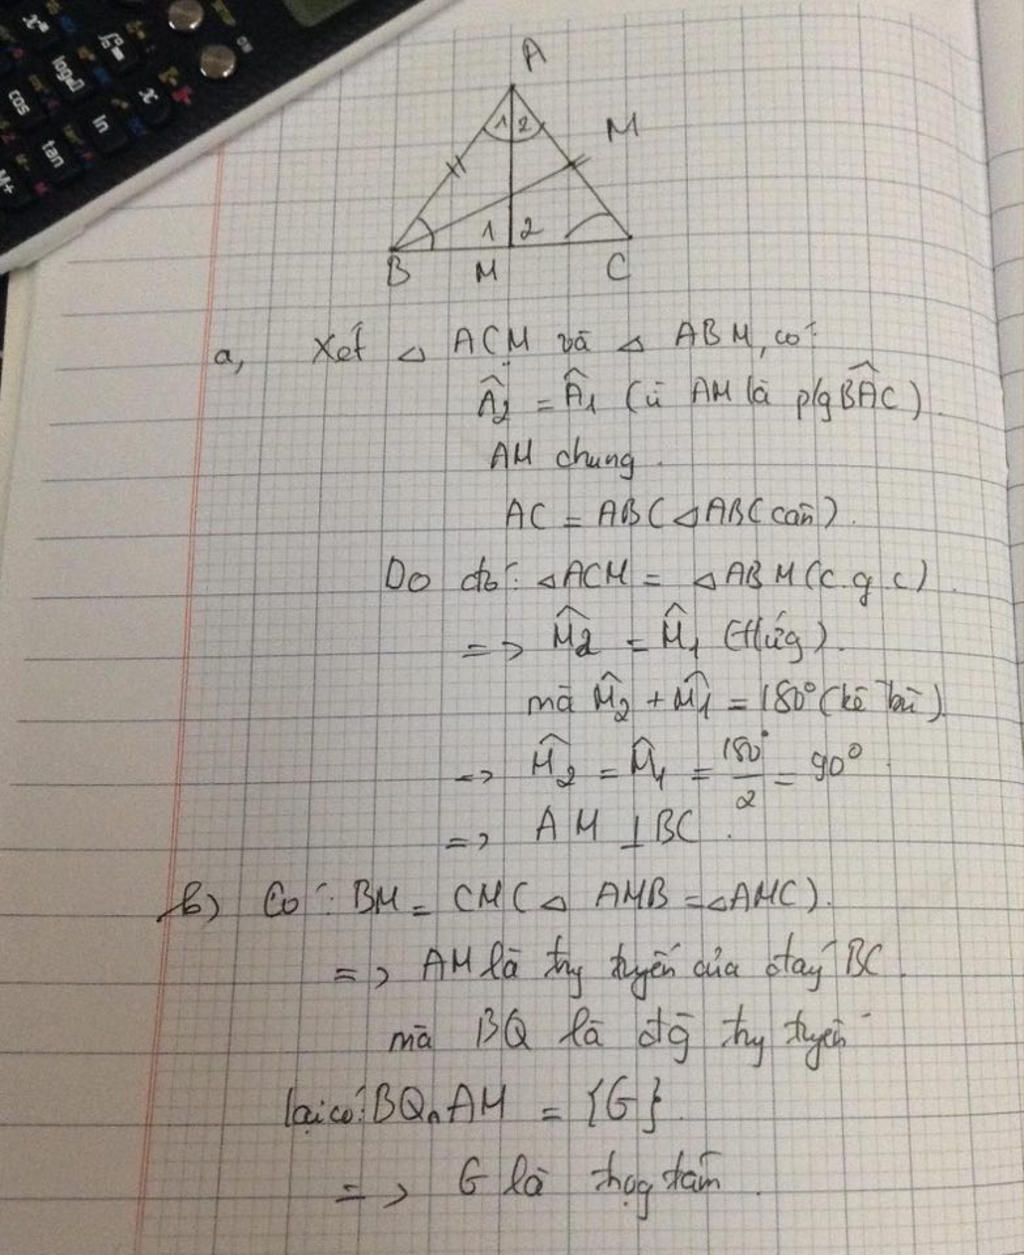 x²
log₂□
cos
ln
x
tan
M+
ON
A
1 2
M
1 2
B M C
a, Xét △ ACM và △ ABM, có:
Â2 = Â1 (vì AM là p/g BÂC).
AM chung.
AC = AB (△ABC cân).
Do đó: △ACM = △ABM (c.g.c).
=> M̂2 = M̂1 (tứg).
mà M̂2 + M̂1 = 180° (kề bù)
=> M̂2 = M̂1 = 180°/2 = 90°.
=> AM ⊥ BC.
b) Có: BM = CM (△ AMB = △AMC).
=> AM là tγ tuyến của đáy BC.
mà BQ là đg tγ tuyến
lại có: BQ ∩ AM = {G}.
=> G là trọg tâm.